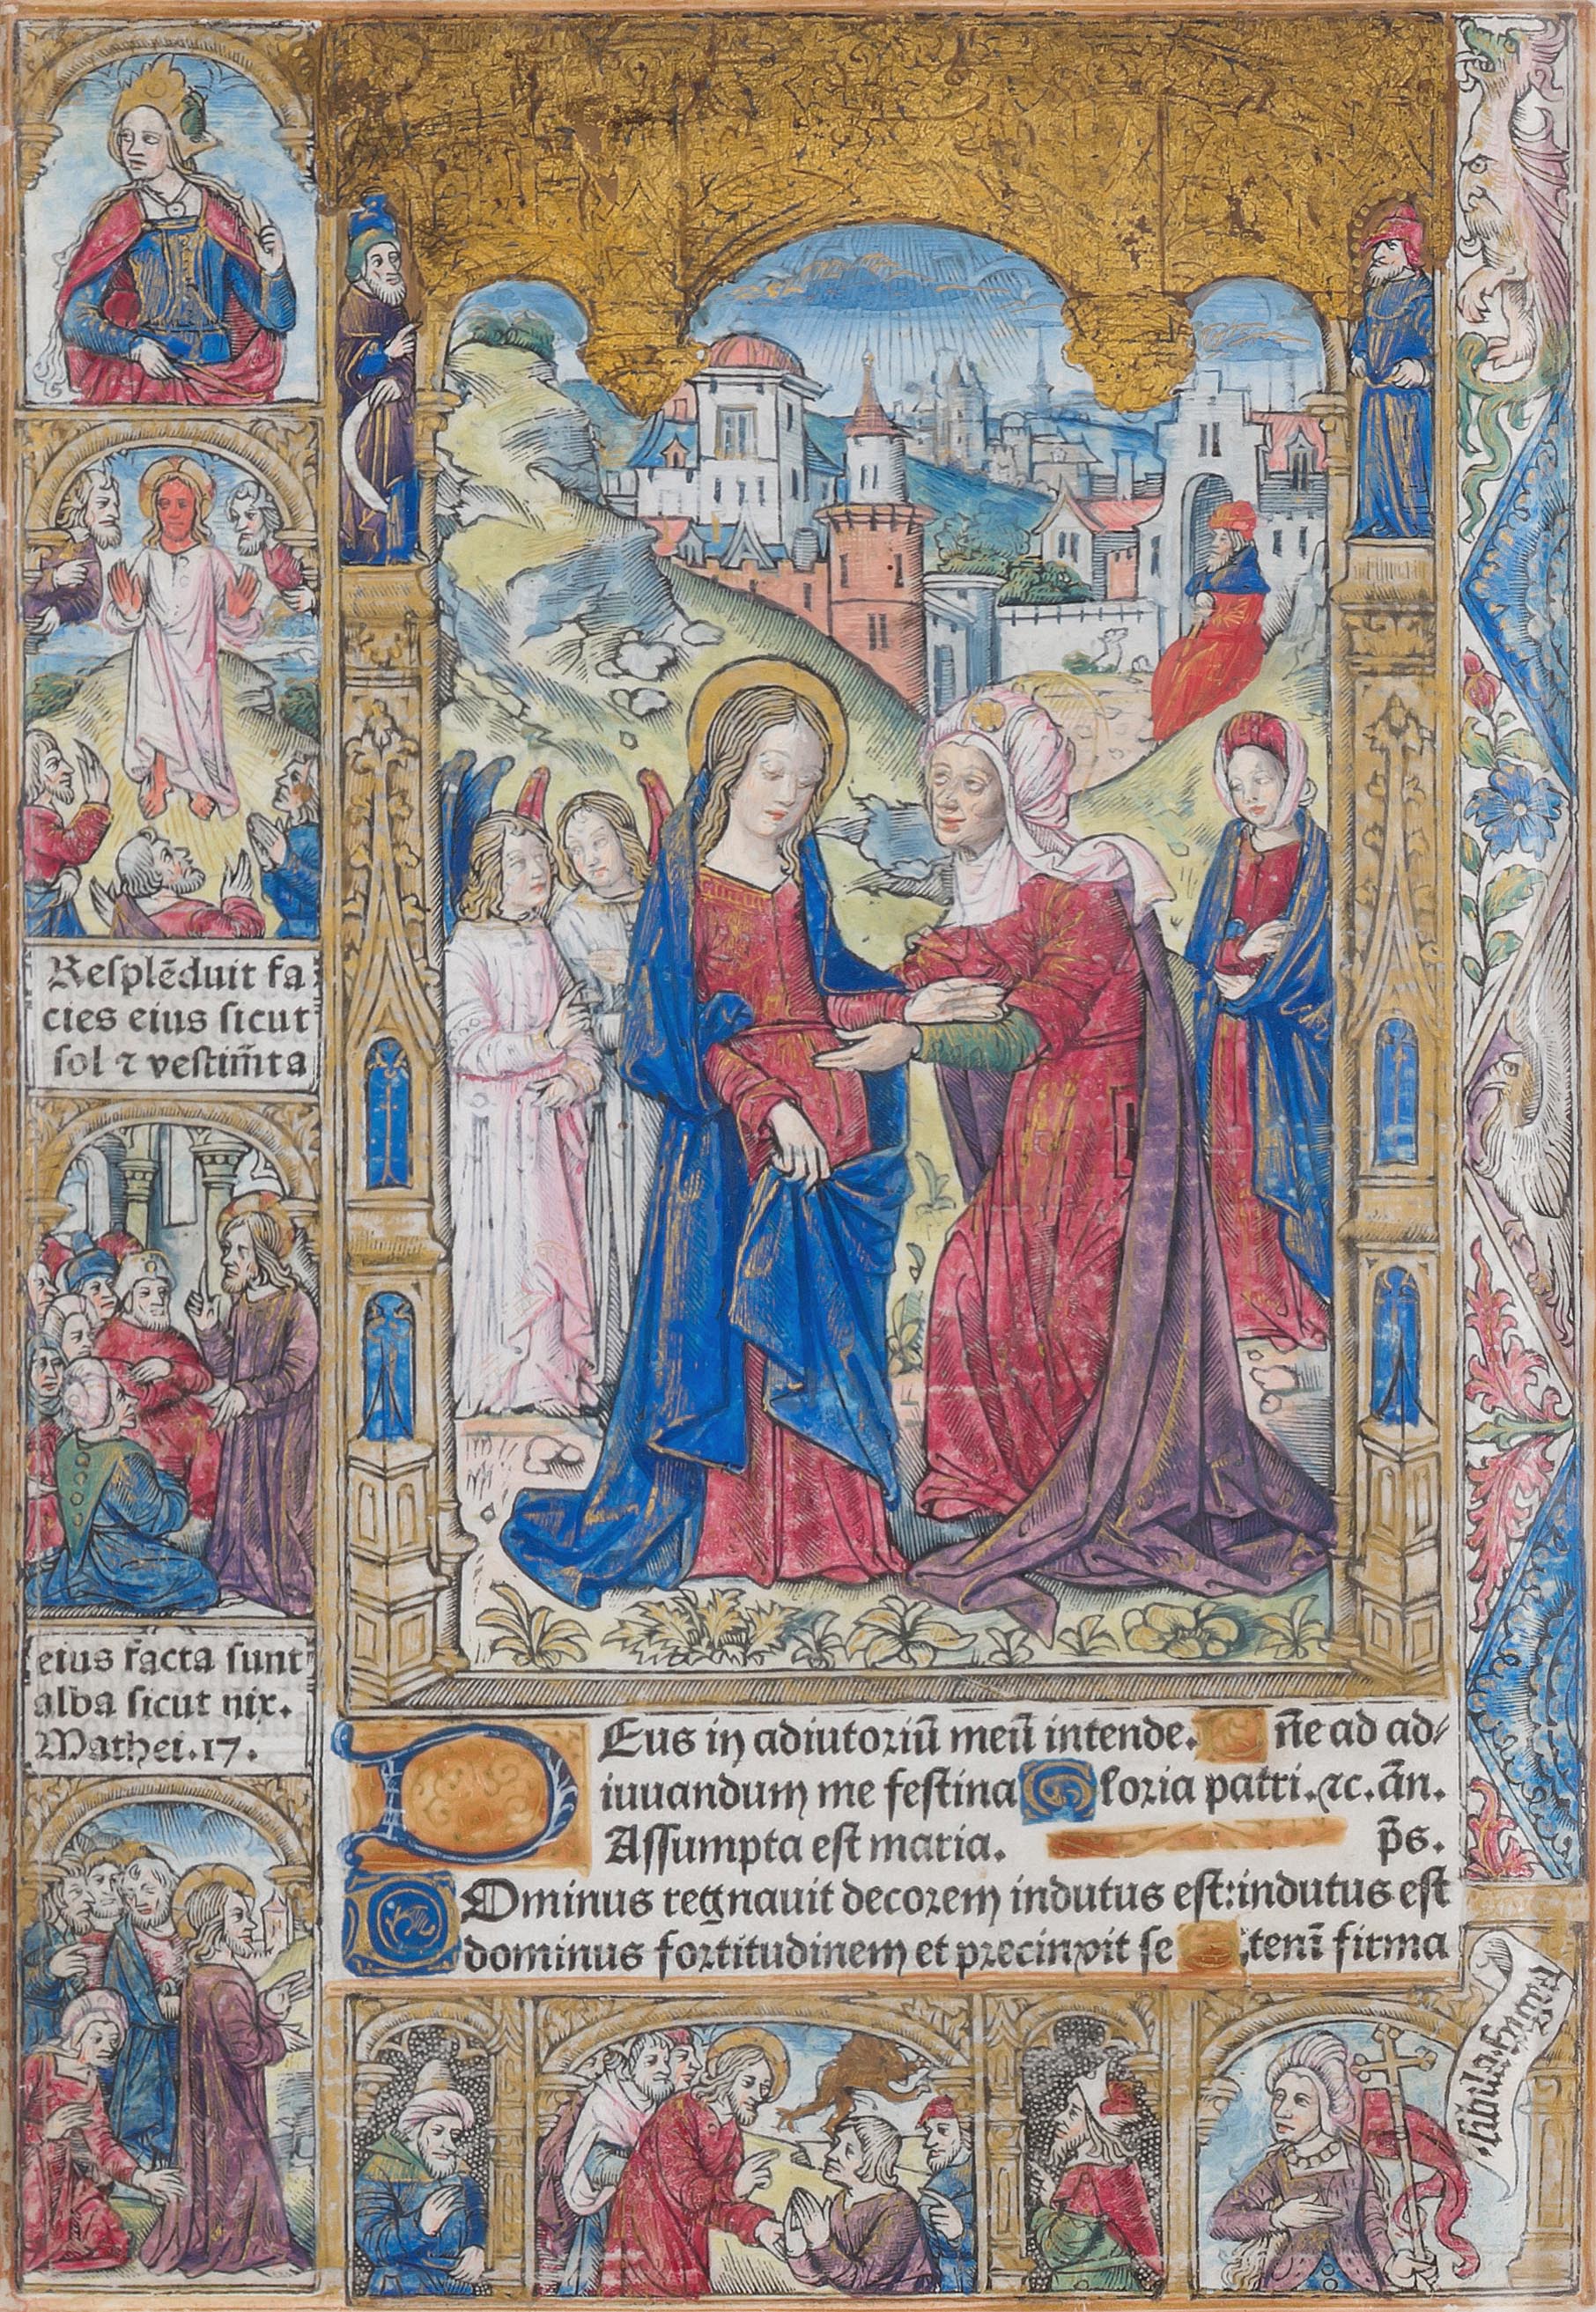 Resplēduit fa
cies eius sicut
sol ⁊ vestim̄ta
eius facta sunt
alba sicut nix.
Mathei.17.
DEus in adiutoriū meū intende. n̄e ad ad/
iuuandum me festina Gloria patri.⁊c.ān.
Assumpta est maria. p̄s.
DOminus regnauit decorem indutus est:indutus est
dominus fortitudinem et precinxit se tenī firma
sibila